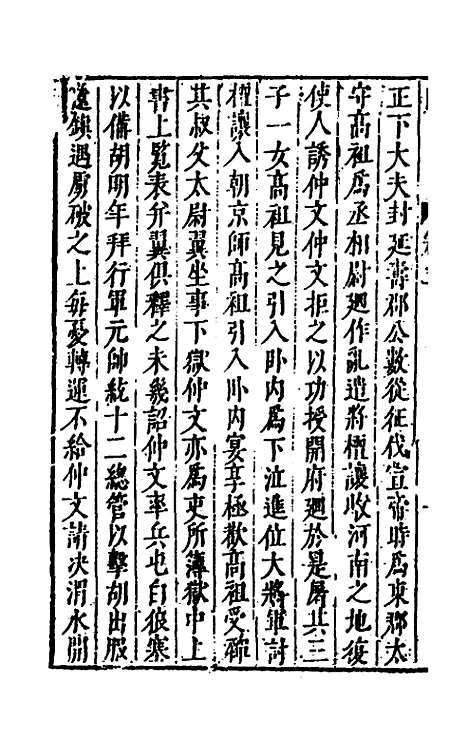 正下大夫封延壽郡公數從征伐宣帝時爲東郡太
守高祖爲丞相尉廽作亂遣將檀讓收河南之地復
使人誘仲文仲文拒之以功授開府廽於是屠其三
子一女高祖見之引入卧内爲下泣進位大將軍討
檀讓入朝京師高祖引入卧内宴享極歡高祖受禪
其叔父太尉翼坐事下獄仲文亦爲吏所簿獄中上
書上覽表并翼俱釋之未幾詔仲文率兵屯白狼塞
以備胡明年拜行軍元帥統十二總管以擊胡出服
遠鎮遇虜破之上每憂轉運不給仲文請决渭水開